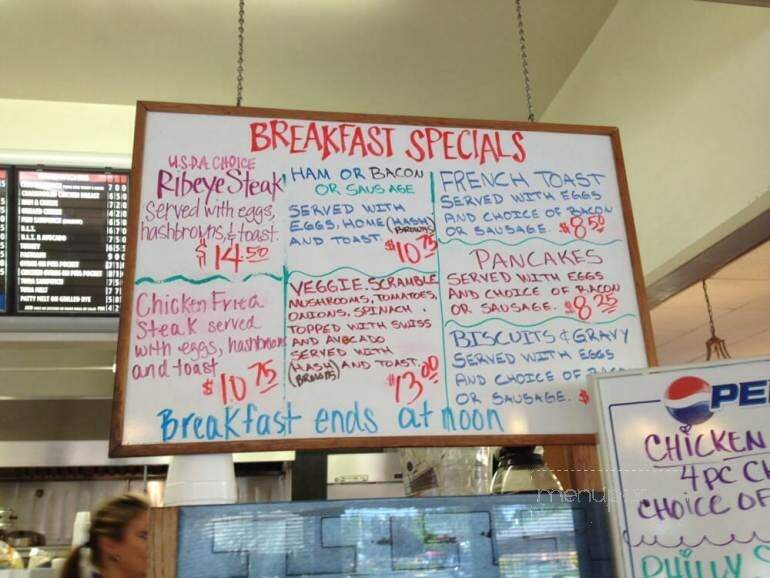 BREAKFAST SPECIALS
U.S.D.A. CHOICE
Ribeye Steak
Served with eggs,
hashbrowns, & toast.
$14.50
Chicken Fried
Steak served
with eggs, hashbrowns
and toast
$10.75
HAM OR BACON
OR SAUSAGE
SERVED WITH
EGGS, HOME (HASH BROWNS)
AND TOAST. $10.75
VEGGIE SCRAMBLE
MUSHROOMS, TOMATOES,
ONIONS, SPINACH,
TOPPED WITH SWISS
AND AVOCADO
SERVED WITH
(HASH BROWNS) AND TOAST.
$13.00
FRENCH TOAST
SERVED WITH EGGS
AND CHOICE OF BACON
OR SAUSAGE. $8.50
PANCAKES
SERVED WITH EGGS
AND CHOICE OF BACON
OR SAUSAGE. $8.25
BISCUITS & GRAVY
SERVED WITH EGGS
AND CHOICE OF
OR SAUSAGE. $
Breakfast ends at noon
PE
CHICKEN
4 PC CH
CHOICE OF
PHILLY S
menupix